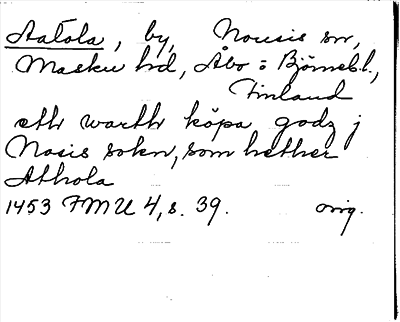 Aatola, by, Nousis sn,
Masku hd, Åbo o Björneb. l.,
Finland
ethr warthr köpa godz j
Nosis sokn, som hether
Athola
1453 FMU 4, s. 39. orig.